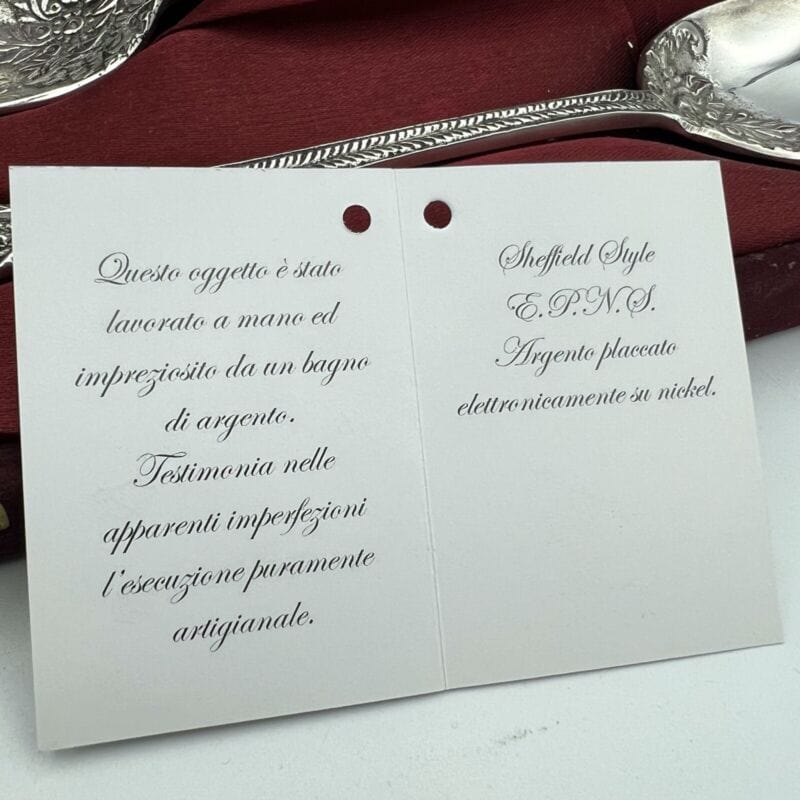 Questo oggetto è stato
lavorato a mano ed
impreziosito da un bagno
di argento.
Testimonia nelle
apparenti imperfezioni
l'esecuzione puramente
artigianale.
Sheffield Style
E.P.N.S.
Argento placcato
elettronicamente su nickel.